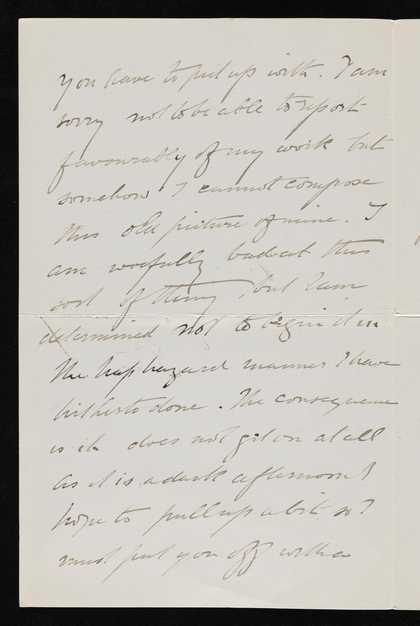 you have to put up with. I am
sorry not to be able to report
favourably of my work but
somehow I cannot compose
this old picture of mine. I
am woefully bad at this
sort of thing, but I am
determined not to begin it in
the hap hazard manner I have
hitherto done. The consequence
is it does not get on at all
As it is a dark afternoon I
hope to pull up a bit so I
must put you off with a